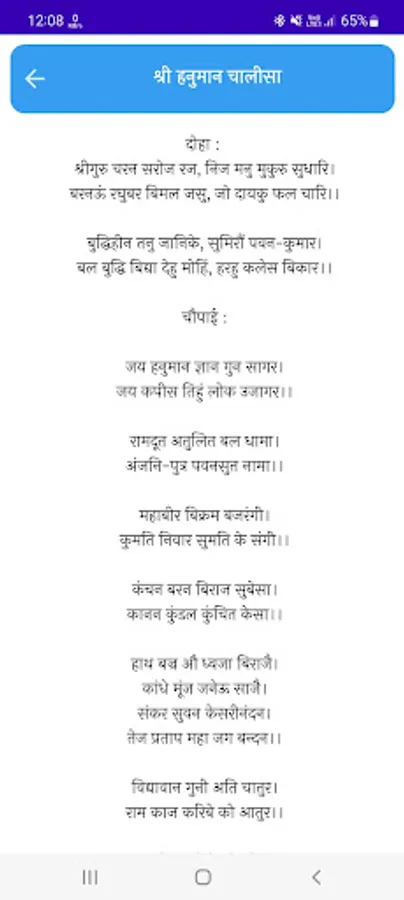 12:08
65%
श्री हनुमान चालीसा
दोहा :
श्रीगुरु चरन सरोज रज, निज मनु मुकुरु सुधारि।
बरनऊं रघुबर बिमल जसु, जो दायकु फल चारि।।
बुद्धिहीन तनु जानिके, सुमिरौं पवन-कुमार।
बल बुद्धि बिद्या देहु मोहिं, हरहु कलेस बिकार।।
चौपाई :
जय हनुमान ज्ञान गुन सागर।
जय कपीस तिहुं लोक उजागर।।
रामदूत अतुलित बल धामा।
अंजनि-पुत्र पवनसुत नामा।।
महाबीर बिक्रम बजरंगी।
कुमति निवार सुमति के संगी।।
कंचन बरन बिराज सुबेसा।
कानन कुंडल कुंचित केसा।।
हाथ बज्र औ ध्वजा बिराजै।
कांधे मूंज जनेऊ साजै।
संकर सुवन केसरीनंदन।
तेज प्रताप महा जग बन्दन।।
विद्यावान गुनी अति चातुर।
राम काज करिबे को आतुर।।